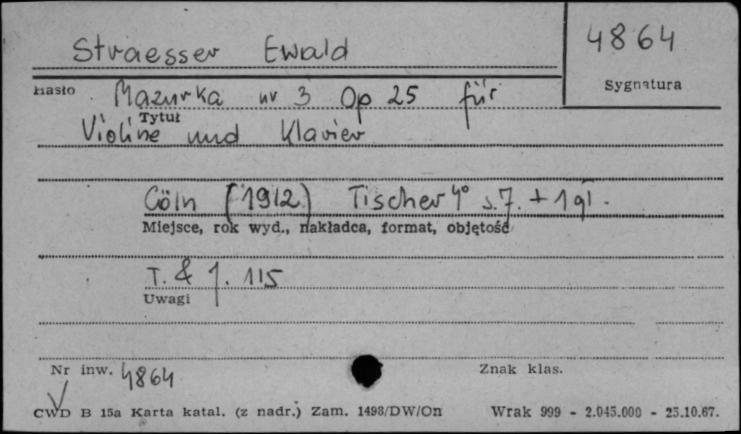 Straesser Ewald
4864
Hasło
Sygnatura
Mazurka nr 3 Op 25 für
Tytuł
Violine und Klavier
Cöln (1912) Tischer 4° s. 7. + 1 gł.
Miejsce, rok wyd., nakładca, format, objętość
T. & J. 115
Uwagi
Nr inw. 4864
Znak klas.
CWD B 15a Karta katal. (z nadr.) Zam. 1498/DW/On Wrak 999 - 2.045.000 - 25.10.67.